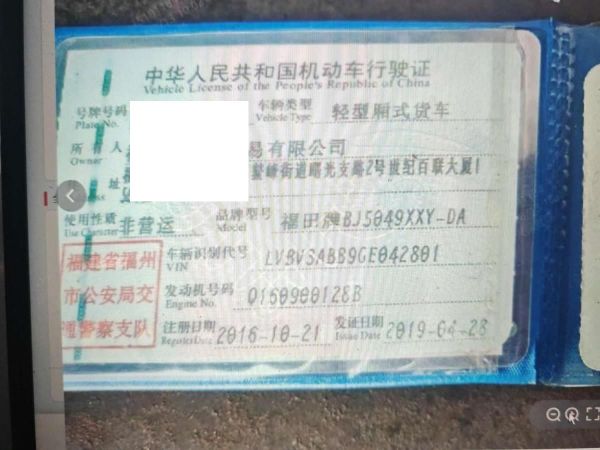 中华人民共和国机动车行驶证
Vehicle License of the People's Republic of China
号牌号码
Plate No.
车辆类型
Vehicle Type
轻型厢式货车
所有人
Owner
易有限公司
址
鳌峰街道曙光支路2号世纪百联大厦1
使用性质
Use Character
非营运
品牌型号
Model
福田牌BJ5049XXY-DA
福建省福州
市公安局交
通警察支队
车辆识别代号
VIN
LVBV3ABB9GE042801
发动机号码
Engine No.
Q160900128B
注册日期
Register Date
2016-10-21
发证日期
Issue Date
2019-04-28